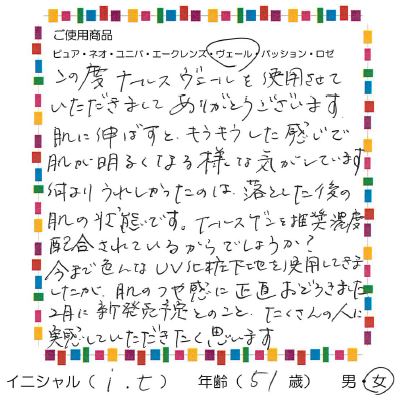 ご使用商品
ピュア・ネオ・ユニバ・エークレンズ・ヴェール・パッション・ロゼ
この度ナールスヴェールを使用させて
いただきまして ありがとうございます
肌に伸ばすと、もうもうした感じで
肌が明るくなる様な気がしています
何よりうれしかったのは、落とした後の
肌の状態です。ナールスゲンを推奨濃度
配合されているからでしょうか?
今まで色んなUV化粧下地を使用してきま
したが、肌のつや感に正直おどろきました
2月に新発売予定とのこと、たくさんの人に
実感していただきたく思います
イニシャル( i.t ) 年齢( 51 歳) 男・女